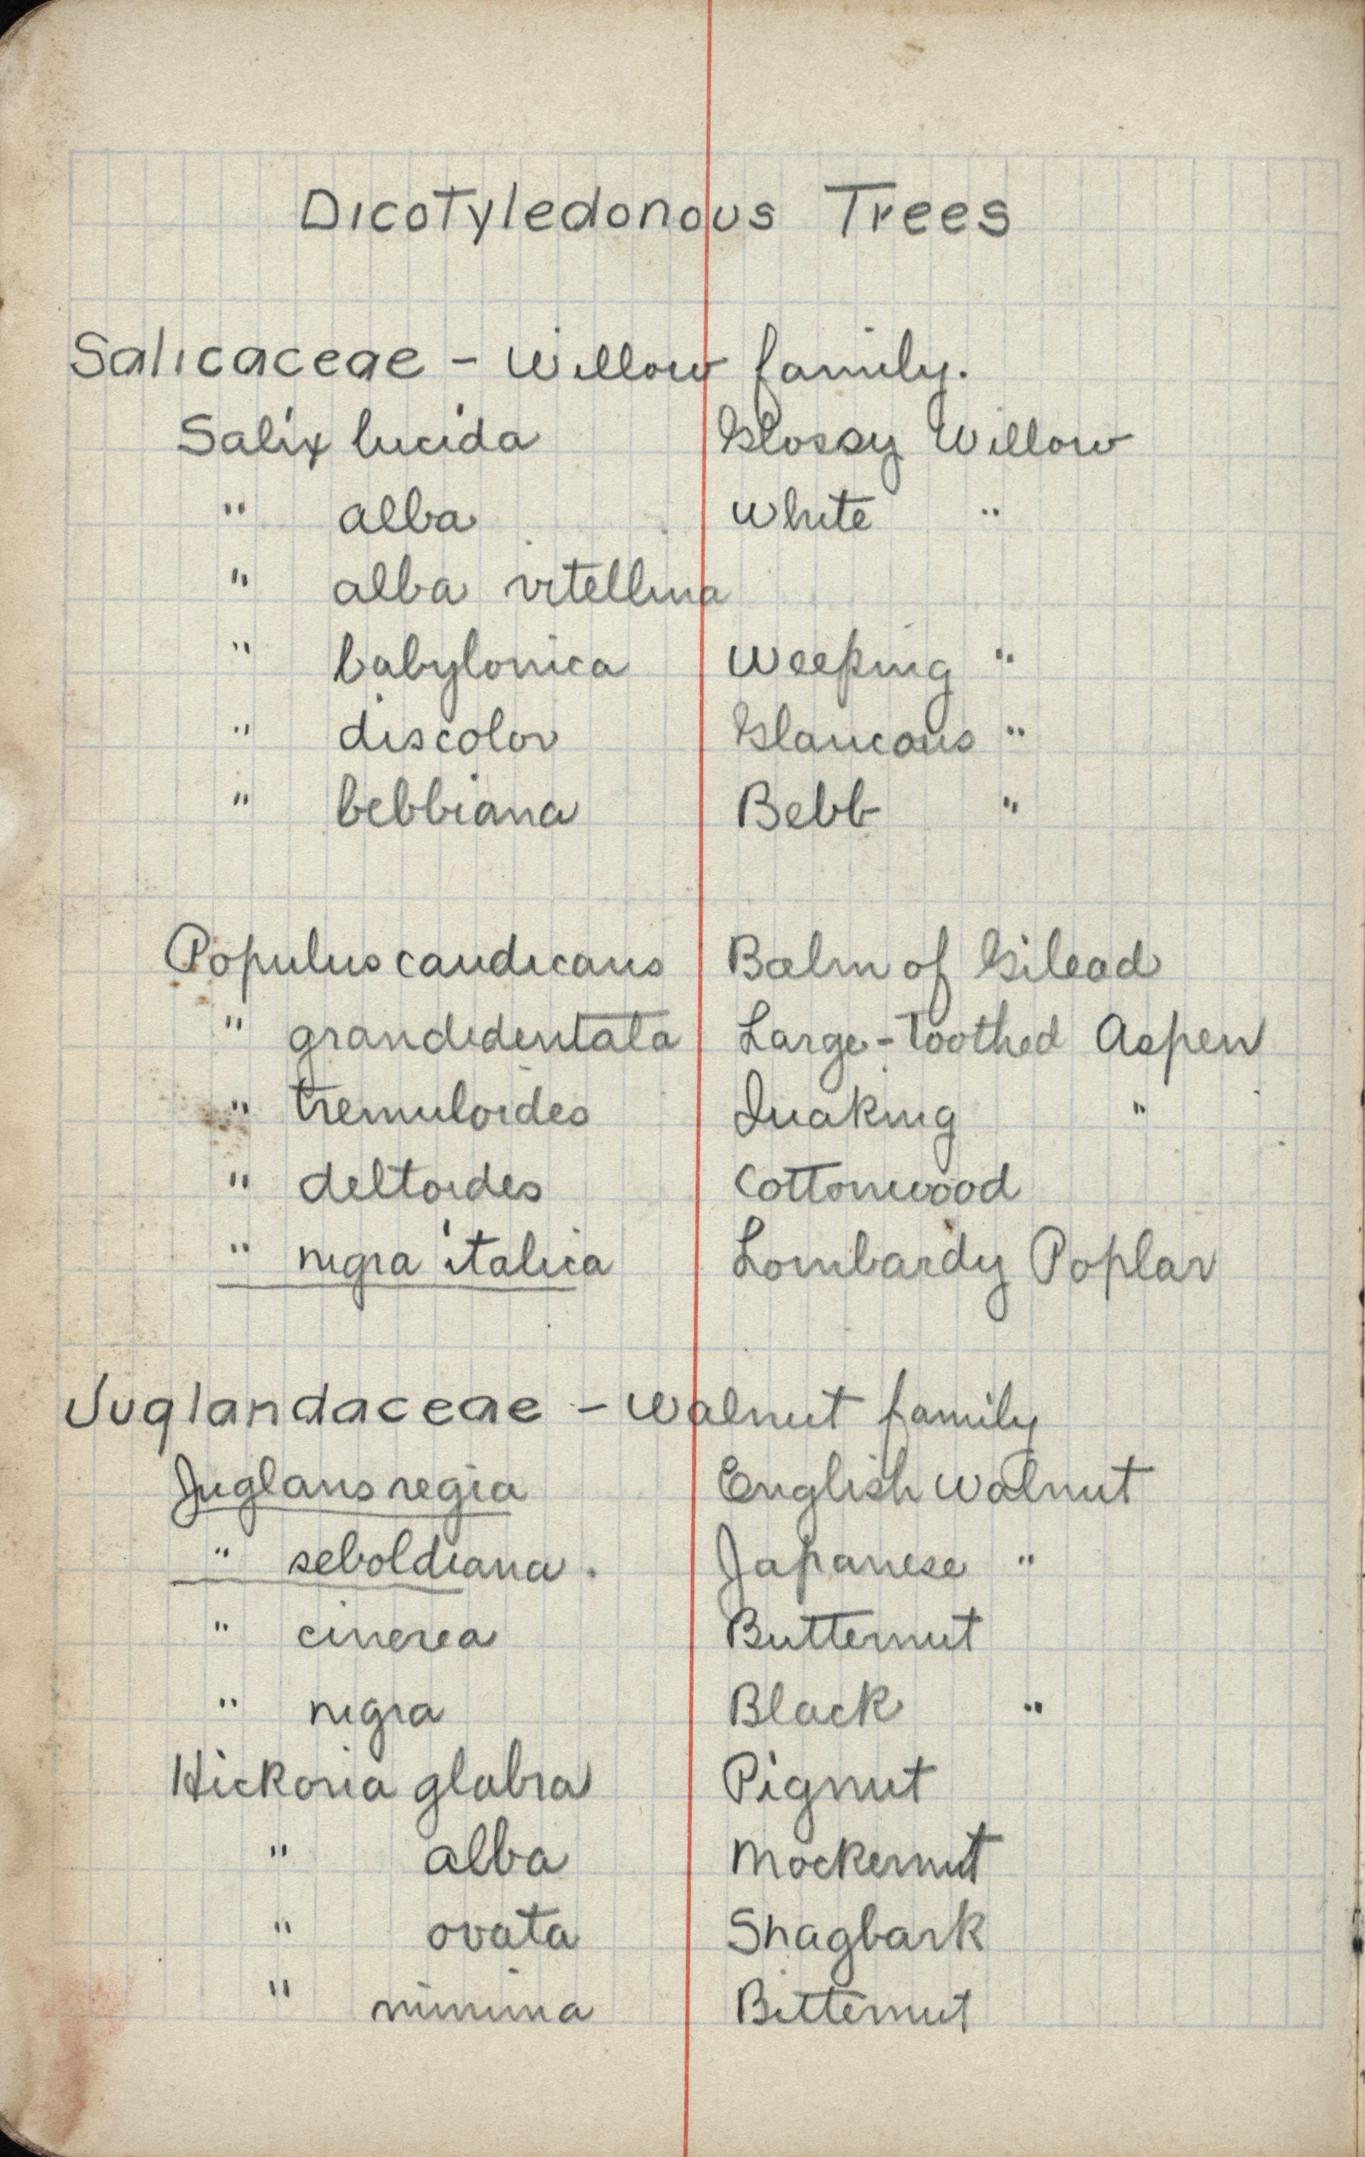 Dicotyledonous Trees
Salicaceae - Willow family.
Salix lucida Glossy Willow
" alba White "
" alba vitellina
" babylonica Weeping "
" discolor Glaucous "
" bebbiana Bebb "
Populus candicans Balm of Gilead
" grandidentata Large-Toothed Aspen
" tremuloides Quaking "
" deltoides Cottonwood
" nigra italica Lombardy Poplar
Juglandaceae - Walnut family
Juglans regia English Walnut
" seboldiana. Japanese "
" cinerea Butternut
" nigra Black "
Hickoria glabra Pignut
" alba Mockernut
" ovata Shagbark
" minima Bitternut